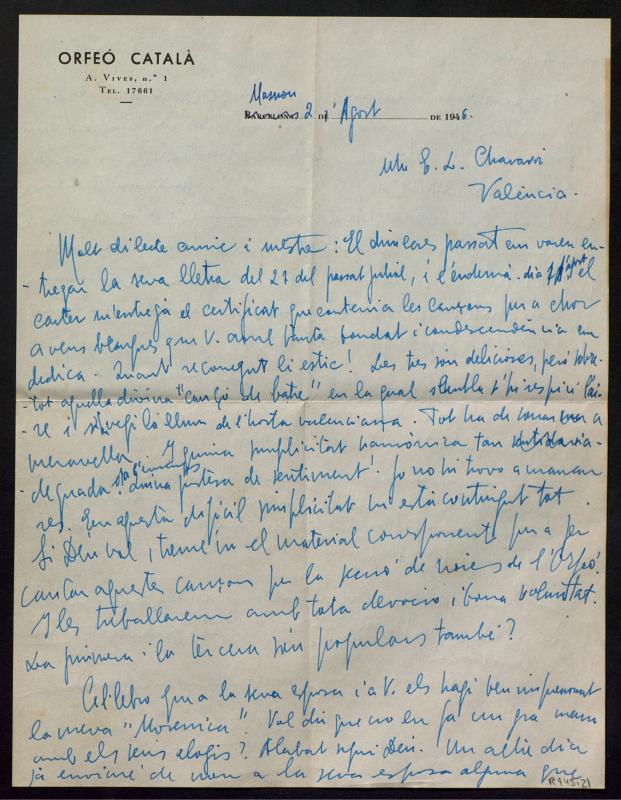 ORFEÓ CATALÀ
A. VIVES, n.º 1
TEL. 17661
Masnou
BARCELONA, 2 d' Agost DE 1946.
E. L. Chavarri
València.
Molt dilecte amic i mestre: El dimecres passat em varen en-
tregar la seva lletra del 27 del passat juliol, i l'endemà dia 1 d'Agost el
carter m'entregà el certificat que contenia les cançons per a chor
a veus blanques que V. amb tanta bondat i condescendència em
dedica. Quant reconegut li estic! Les tres són delicioses, però sobre-
tot aquella divina "cançó de batre" en la qual sembla s'hi respiri l'ai-
re i s'hi vegi la llum de l'horta valenciana. Tot ha de sonar a
meravella. I quina simplicitat harmònica tan
deguada. divina justesa de sentiment! Jo no hi trovo a mancar
res. En aquesta difícil simplicitat hi està contingut tot.
Si Déu vol, treurem el material corresponent per a fer
cantar aquestes cançons per la secció de noies de l'Orfeó.
I les treballarem amb tota devoció i bona voluntat.
La primera i la tercera són populars també?
Celebro que a la seva esposa i a V. els hagi ben impressionat
la meva "Moreneta". Vol dir que no en fa un gra massa
amb els seus elogis? Alabat sigui Déu. Un altre dia
ja enviaré de nou a la seva esposa alguna que
R945.21